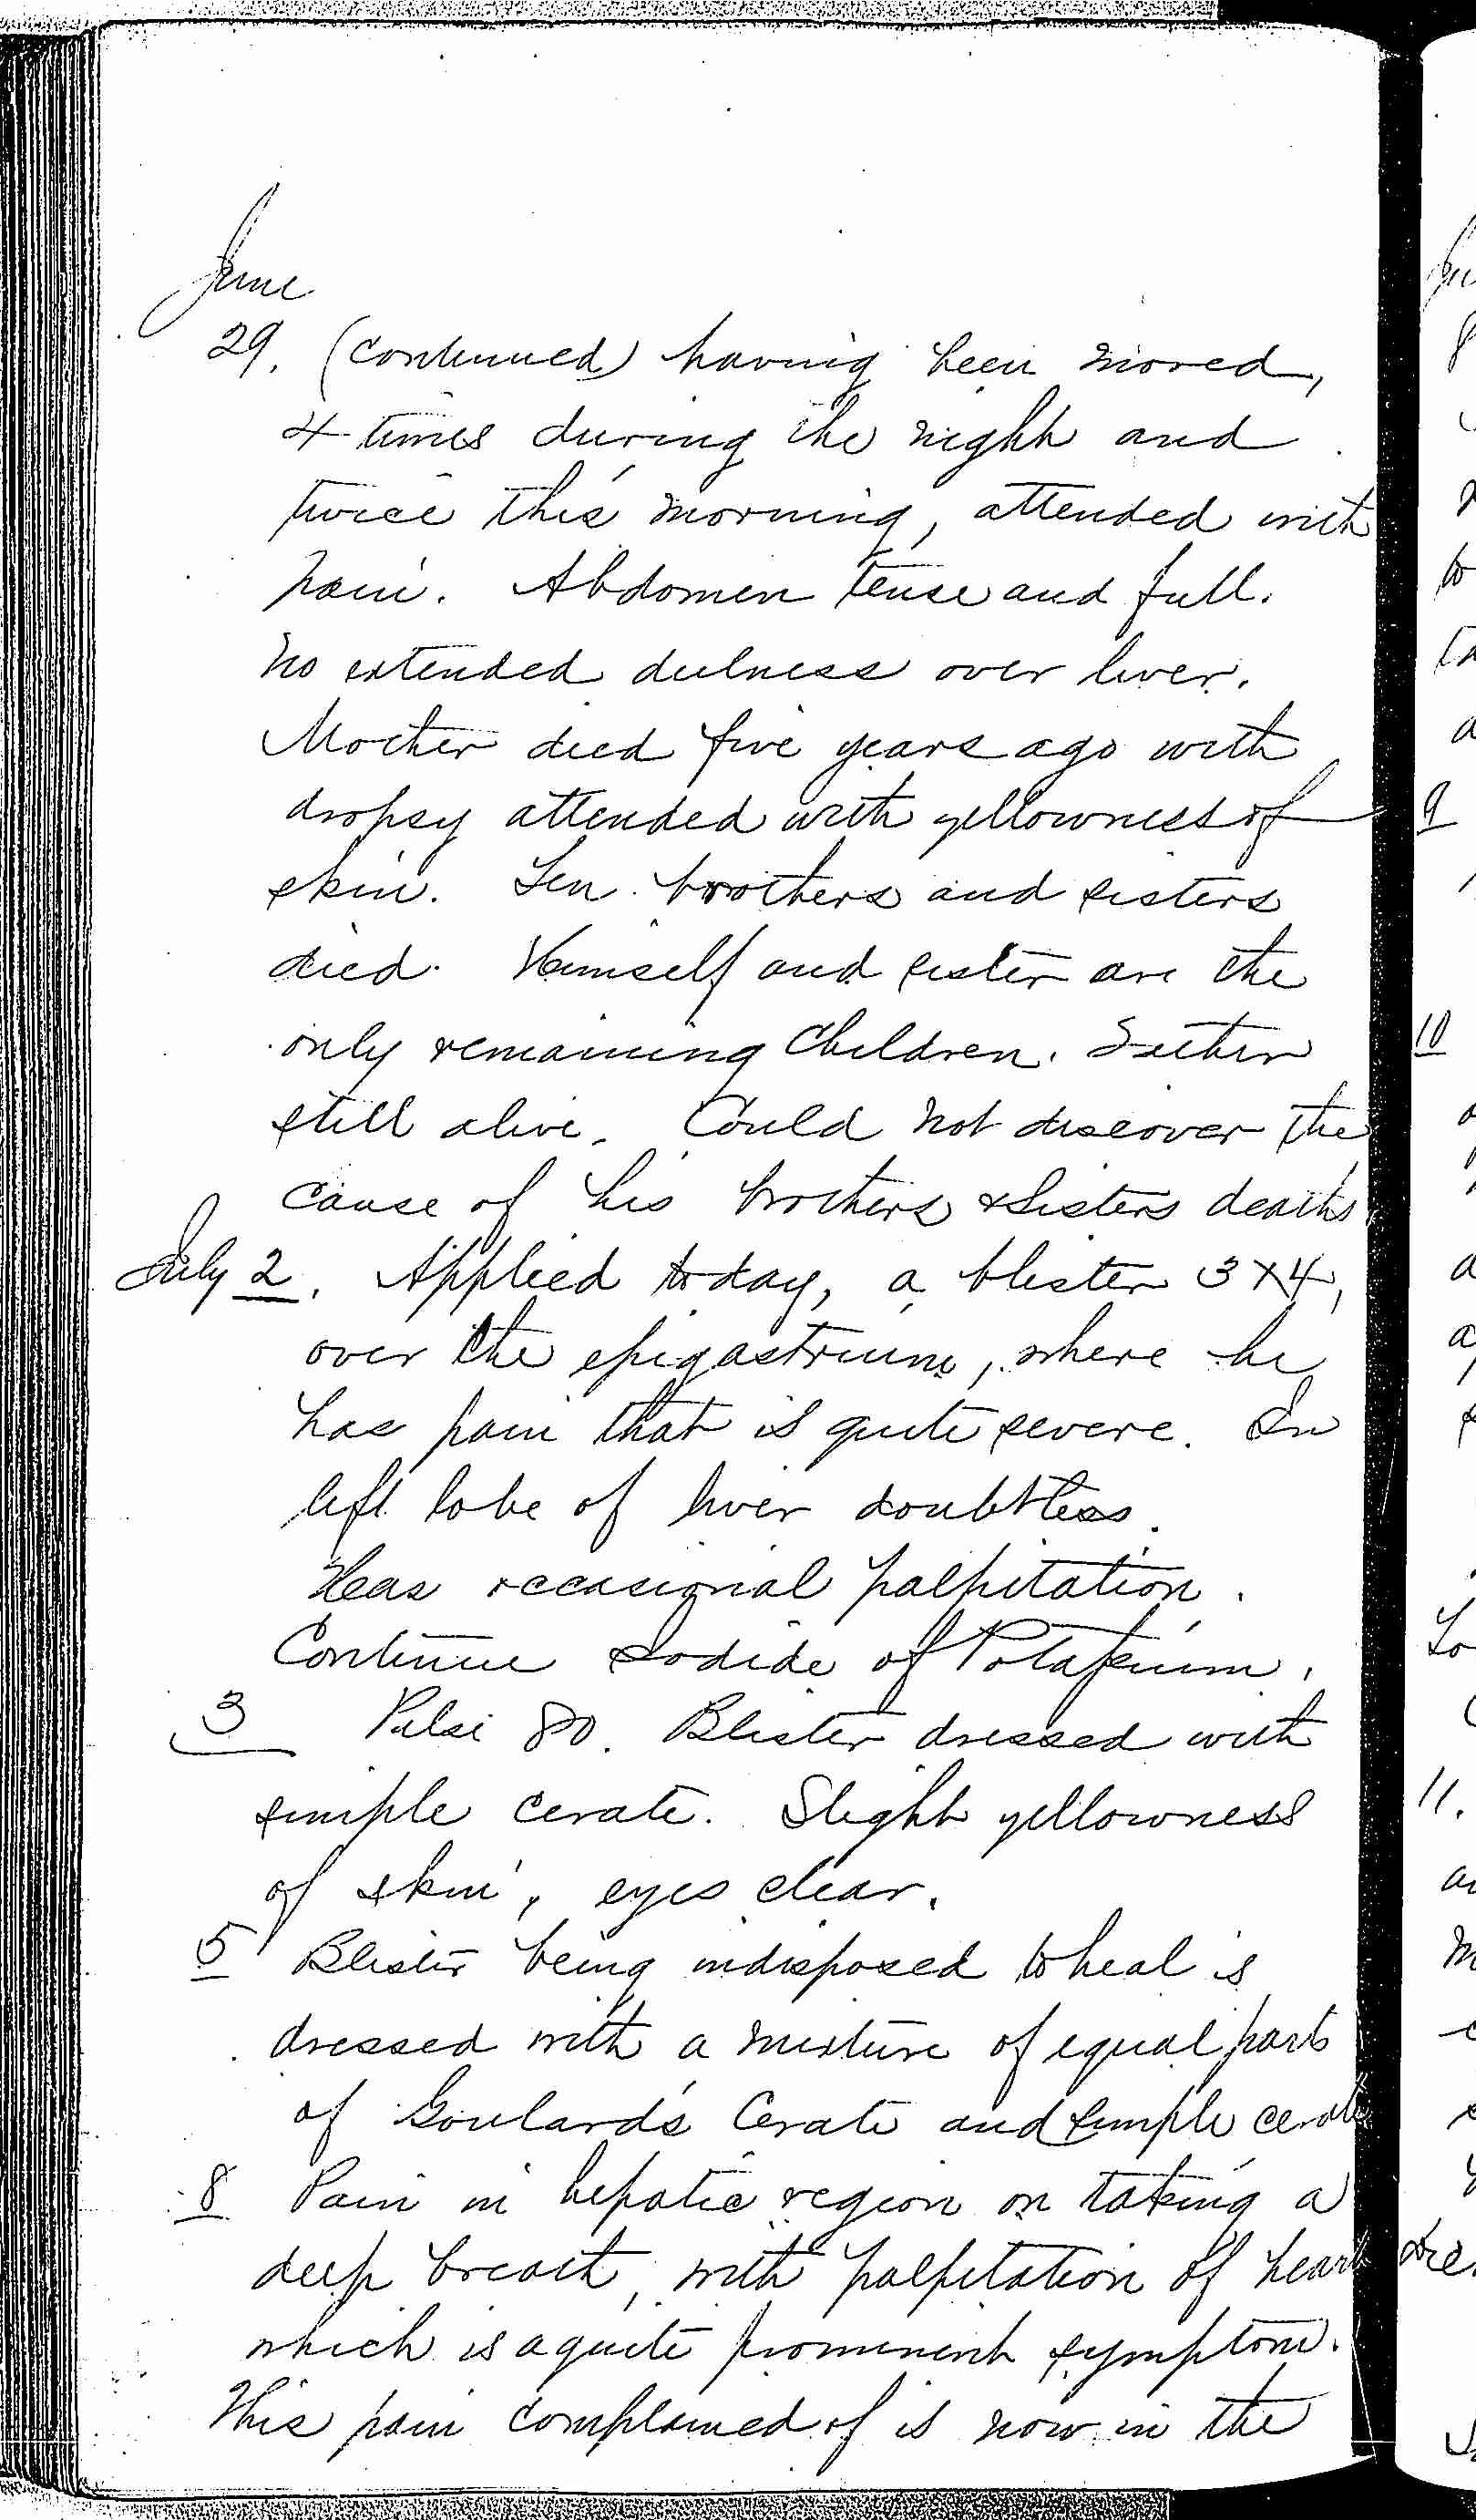 June
29. (continued) having been moved,
4 times during the night and
twice this morning, attended with
pain. Abdomen tense and full.
No extended dulness over liver.
Mother died five years ago with
dropsy attended with yellowness of
skin. Ten brothers and sisters
died. Himself and sister are the
only remaining children. Father
still alive. Could not discover the
cause of his brothers & sisters deaths
July 2. Applied today, a blister 3 x 4,
over the epigastrium, where he
has pain that is quite severe. In
left lobe of liver doubtless.
Has occasional palpitation.
Continue Iodide of Potassium.
3 Pulse 80. Blister dressed with
simple cerate. Slight yellowness
of skin, eyes clear.
5 Blister being indisposed to heal is
dressed with a mixture of equal parts
of Goulard's Cerate and simple cerate
8 Pain in hepatic region on taking a
deep breath, with palpitation of heart
which is a quite prominent symptom.
This pain complained of is now in the
9
10
11.